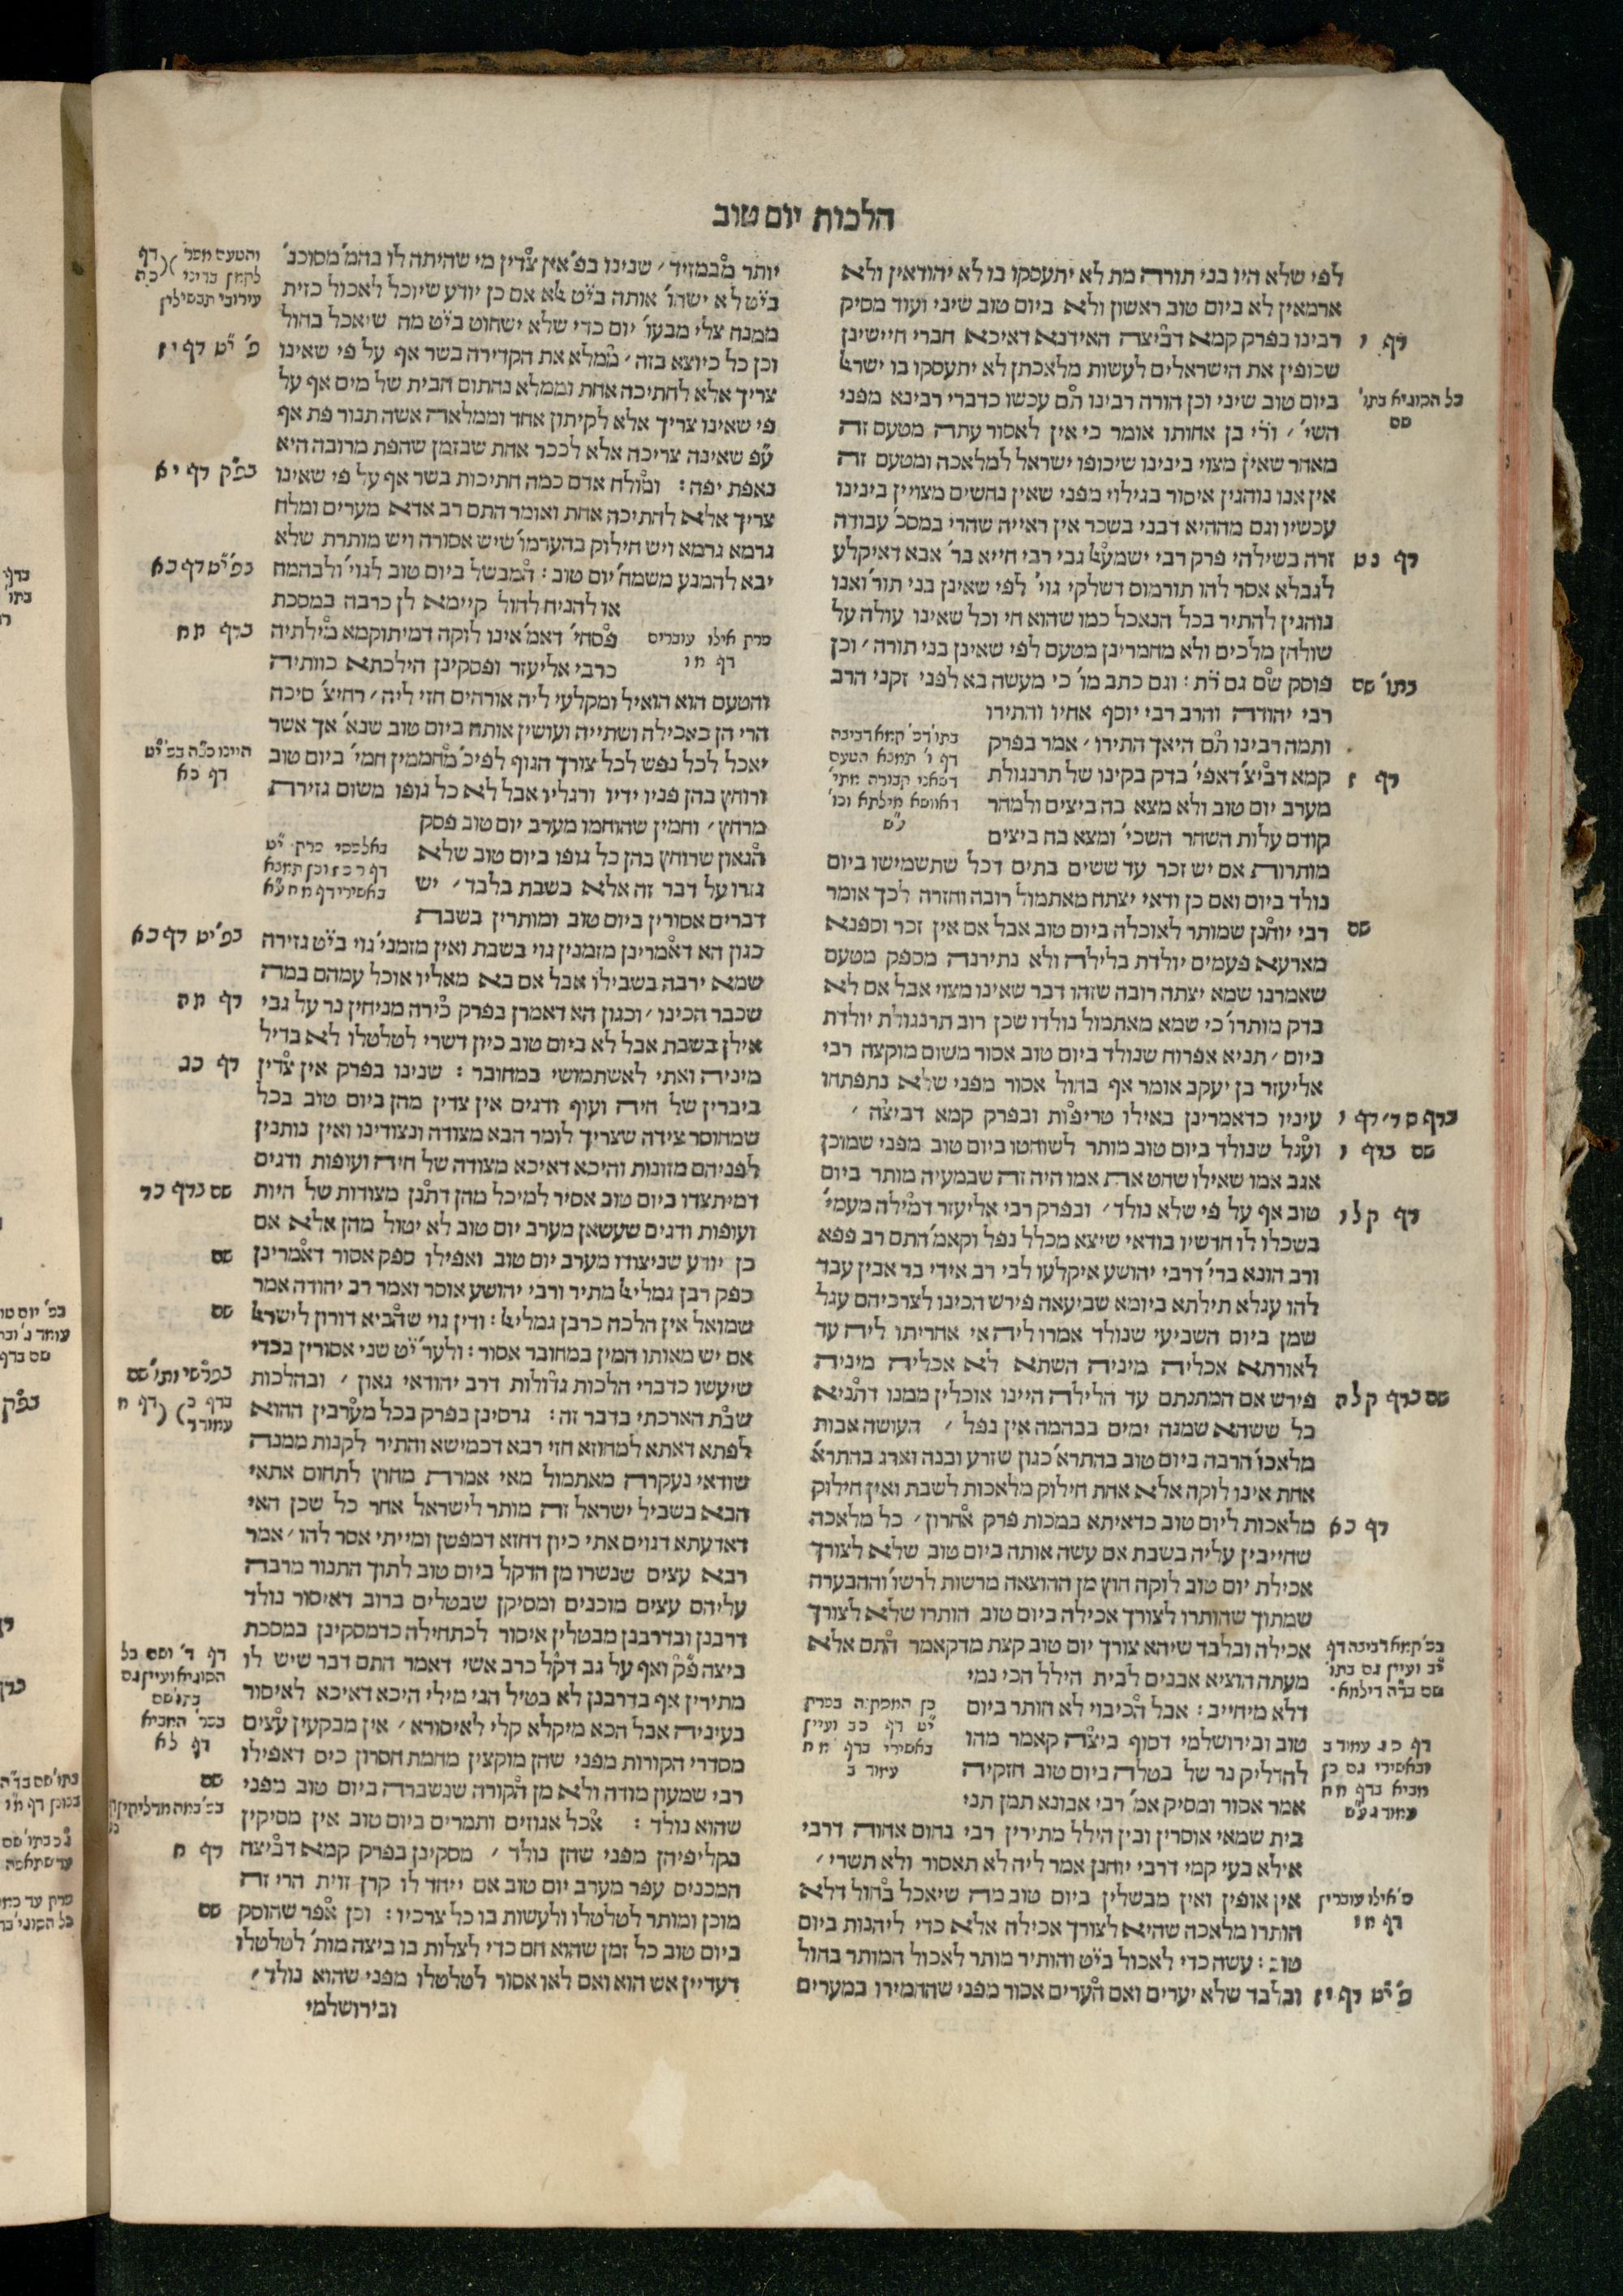 הלכות יום טוב
לפי שלא היו בני תורה מת לא יתעסקו בו לא יהודאין ולא
ארמאין לא ביום טוב ראשון ולא ביום טוב שיני ועוד מסיק
רבינו בפרק קמא דביצה האידנא דאיכא חברי חיישינן
שכופין את הישראלים לעשות מלאכתן לא יתעסקו בו ישרא׳
ביום טוב שיני וכן הורה רבינו תם עכשו כדברי רבינא מפני
השי׳ ור״י בן אחותו אומר כי אין לאסור עתה מטעם זה
מאחר שאין מצוי בינינו שיכופו ישראל למלאכה ומטעם זה
אין אנו נוהגין איסור בגילוי מפני שאין נחשים מצויין בינינו
עכשיו וגם מההיא דבני בשכר אין ראייה שהרי במסכ׳ עבודה
זרה בשילהי פרק רבי ישמעאל גבי רבי חייא בר׳ אבא דאיקלע
לגבלא אסר להו תורמוס דשלקי גוי׳ לפי שאינן בני תור׳ ואנו
נוהגין להתיר בכל הנאכל כמו שהוא חי וכל שאינו עולה על
שולחן מלכים ולא מחמרינן מטעם לפי שאינן בני תורה׳ וכן
פוסק שם גם ר״ת: וגם כתב מו׳ כי מעשה בא לפני זקני הרב
רבי יהודה והרב רבי יוסף אחיו והתירו
ותמה רבינו תם היאך התירו׳ אמר בפרק
קמא דביצ׳ דאפי׳ בדק בקינו של תרנגולת
מערב יום טוב ולא מצא בה ביצים ולמחר
קודם עלות השחר השכי׳ ומצא בה ביצים
מותרות אם יש זכר עד ששים בתים דכל שתשמישו ביום
נולד ביום ואם כן ודאי יצתה מאתמול רובה וחזרה לכך אומר
רבי יוחנן שמותר לאוכלה ביום טוב אבל אם אין זכר וספנא
מארעא פעמים יולדת בלילה ולא נתירנה מספק מטעם
שאמרנו שמא יצתה רובה שזהו דבר שאינו מצוי אבל אם לא
בדק מותרו׳ כי שמא מאתמול נולדו שכן רוב תרנגולת יולדת
ביום׳ תניא אפרוח שנולד ביום טוב אסור משום מוקצה רבי
אליעזר בן יעקב אומר אף בחול אסור מפני שלא נתפתחו
עיניו כדאמרינן באילו טריפות ובפרק קמא דביצה׳
ועגל שנולד ביום טוב מותר לשוחטו ביום טוב מפני שמוכן
אגב אמו שאילו שחט את אמו היה זה שבמעיה מותר ביום
טוב אף על פי שלא נולד׳ ובפרק רבי אליעזר דמילה מעמי׳
בשכלו לו חדשיו בודאי שיצא מכלל נפל וקאמ׳ התם רב פפא
ורב הונא ברי׳ דרבי יהושע איקלעו לבי רב אידי בר אבין עבד
להו עגלא תילתא ביומא שביעאה פירש הכינו לצרכיהם עגל
שמן ביום השביעי שנולד אמרו ליה אי אחריתו ליה עד
לאורתא אכליה מיניה השתא לא אכליה מיניה
פירש אם המתנתם עד הלילה היינו אוכלין ממנו דתניא
כל ששהא שמנה ימים בבהמה אין נפל׳ העושה אבות
מלאכו׳ הרבה ביום טוב בהתרא׳ כגון שזרע ובנה וארג בהתרא׳
אחת אינו לוקה אלא אחת חילוק מלאכות לשבת ואין חילוק
מלאכות ליום טוב כדאיתא במכות פרק אחרון׳ כל מלאכה
שחייבין עליה בשבת אם עשה אותה ביום טוב שלא לצורך
אכילת יום טוב לוקה חוץ מן ההוצאה מרשות לרשו׳ וההבערה
שמתוך שהותרו לצורך אכילה ביום טוב הותרו שלא לצורך
אכילה ובלבד שיהא צורך יום טוב קצת מדקאמר התם אלא
מעתה הוציא אבנים לבית הילל הכי נמי
דלא מיחייב: אבל הכיבוי לא הותר ביום
טוב ובירושלמי דסוף ביצה קאמר מהו
להדליק נר של בטלה ביום טוב חזקיה
אמר אסור ומסיק אמ׳ רבי אבונא תמן תני
בית שמאי אוסרין ובין הילל מתירין רבי נחום אחוה דרבי
אילא בעי קמי דרבי יוחנן אמר ליה לא תאסור ולא תשרי׳
אין אופין ואין מבשלין ביום טוב מה שיאכל בחול דלא
הותרו מלאכה שהיא לצורך אכילה אלא כדי ליהנות ביום
טוב: עשה כדי לאכול בי״ט והותיר מותר לאכול המותר בחול
ובלבד שלא יערים ואם הערים אסור מפני שההמירו במערים
דף י
כל הסוגיא בתו׳
שם
דף נט
בתו׳ שם
דף ז
שם
בדף סד׳ דף ו
שם בדף ו
דף קלו
שם בדף קלה
דף כא
פ׳ אילו עוברין
דף מו
פ׳ י״ט דף יז
יותר מבמזיד׳ שנינו בפ׳ אין צדין מי שהיתה לו בהמ׳ מסוכנ׳
בי״ט לא ישחו׳ אותה בי״ט אלא אם כן יודע שיוכל לאכול כזית
ממנה צלי מבעו׳ יום כדי שלא ישחוט בי״ט מה שיאכל בחול
וכן כל כיוצא בזה׳ ממלא את הקדירה בשר אף על פי שאינו
צריך אלא לחתיכה אחת וממלא נחתום חבית של מים אף על
פי שאינו צריך אלא לקיתון אחד וממלאה אשה תנור פת אף
ע״פ שאינה צריכה אלא לככר אחת שבזמן שהפת מרובה היא
נאפת יפה: ומולח אדם כמה חתיכות בשר אף על פי שאינו
צריך אלא לחתיכה אחת ואומר התם רב אדא מערים ומלח
גרמא גרמא ויש חילוק בהערמו׳ שיש אסורה ויש מותרת שלא
יבא להמנע משמח׳ יום טוב: המבשל ביום טוב לגוי׳ ולבהמה
או להניח לחול קיימא לן כרבה במסכת
פסחי׳ דאמ׳ אינו לוקה דמיתוקמא מילתיה
כרבי אליעזר ופסקינן הילכתא כוותיה
והטעם הוא הואיל ומקלעי ליה אורחים חזי ליה׳ רחיצ׳ סיכה
הרי הן כאכילה ושתייה ועושין אותה ביום טוב שנא׳ אך אשר
יאכל לכל נפש לכל צורך הגוף לפיכ׳ מחממין חמי׳ ביום טוב
ורוחץ בהן פניו ידיו ורגליו אבל לא כל גופו משום גזירת
מרחץ׳ וחמין שהוחמו מערב יום טוב פסק
הגאון שרוחץ בהן כל גופו ביום טוב שלא
גזרו על דבר זה אלא בשבת בלבד׳ יש
דברים אסורין ביום טוב ומותרין בשבת
כגון הא דאמרינן מזמנין גוי בשבת ואין מזמני׳ גוי בי״ט גזירה
שמא ירבה בשבילו אבל אם בא מאליו אוכל עמהם במה
שכבר הכינו׳ וכגון הא דאמרן בפרק כירה מניחין נר על גבי
אילן בשבת אבל לא ביום טוב כיון דשרי לטלטלו לא בדיל
מיניה ואתי לאשתמושי במחובר: שנינו בפרק אין צדין
ביברין של חיה ועוף ודגים אין צדין מהן ביום טוב בכל
שמחוסר צידה שצריך לומר הבא מצודה ונצודינו ואין נותנין
לפניהם מזונות והיכא דאיכא מצודה של חיה ועופות ודגים
דמיתצדו ביום טוב אסיר למיכל מהן דתנן מצודות של חיות
ועופות ודגים שעשאן מערב יום טוב לא יטול מהן אלא אם
כן יודע שניצודו מערב יום טוב ואפילו ספק אסור דאמרינן
ספק רבן גמליא׳ מתיר ורבי יהושע אוסר ואמר רב יהודה אמר
שמואל אין הלכה כרבן גמליא׳: ודין גוי שהביא דורון לישרא׳
אם יש מאותו המין במחובר אסור: ולער׳ י״ט שני אסורין בכדי
שיעשו כדברי הלכות גדולות דרב יהודאי גאון׳ ובהלכות
שבת הארכתי בדבר זה: גרסינן בפרק בכל מערבין ההוא
לפתא דאתא למחוזא חזי רבא דכמישא והתיר לקנות ממנה
שודאי נעקרה מאתמול מאי אמרת מחוץ לתחום אתאי
הבא בשביל ישראל זה מותר לישראל אחר כל שכן האי
דאדעתא דגוים אתי כיון דחזא דמפשן ומייתי אסר להו׳ אמר
רבא עצים שנשרו מן הדקל ביום טוב לתוך התנור מרבה
עליהם עצים מוכנים ומסיקן שבטלים ברוב דאיסור נולד
דרבנן ובדרבנן מבטלין איסור לכתחילה כדמסקינן במסכת
ביצה פ״ק ואף על גב דקל כרב אשי דאמר התם דבר שיש לו
מתירין אף בדרבנן לא בטיל הני מילי היכא דאיכא לאיסור
בעיניה אבל הכא מיקלא קלי לאיסורא׳ אין מבקעין עצים
מסדרי הקורות מפני שהן מוקצין מחמת חסרון כיס דאפילו
רבי שמעון מודה ולא מן הקורה שנשברה ביום טוב מפני
שהוא נולד: אכל אגוזים ותמרים ביום טוב אין מסיקין
בקליפיהן מפני שהן נולד׳ מסקינן בפרק קמא דביצה
המכניס עפר מערב יום טוב אם ייחד לו קרן זוית הרי זה
מוכן ומותר לטלטלו ולעשות בו כל צרכיו: וכן אפר שהוסק
ביום טוב כל זמן שהוא חם כדי לצלות בו ביצה מות׳ לטלטלו
דעדיין אש הוא ואם לאו אסור לטלטלו מפני שהוא נולד׳
ובירושלמי
פ׳ י״ט דף יז
בפ״ק דף יא
בפ׳ י״ט דף כא
פרק אילו עוברים
דף מו
בדף מח
היינו כב״ה בפ׳ י״ט
דף כא
בפ׳ י״ט דף כא
דף מה
דף כג
שם בדף כד
שם
שם
דף לא
שם
דף ח
שם